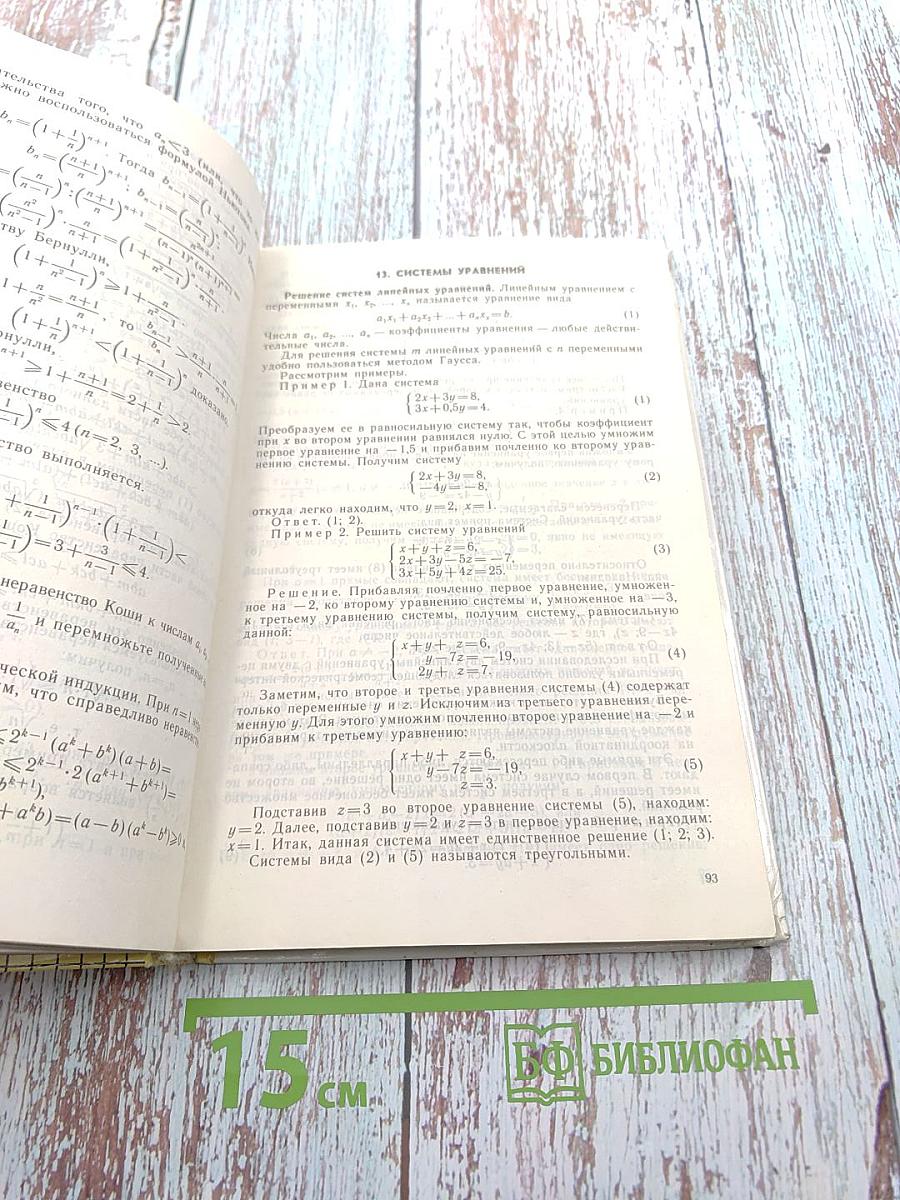 ательства того, что aₙ<3
жно воспользоваться формулой
bₙ=(1+1/n)ⁿ⁺¹. Тогда
ству Бернулли,
рнулли,
доказано.
венство
)ⁿ ⩽4 (n=2, 3, ...).
ство выполняется.
)=3+3/(n−1)⩽4.
неравенство Коши к числам
1/aₙ и перемножьте
ческой индукции. При n=1
м, что справедливо
⩽2ᵏ⁻¹(aᵏ+bᵏ)(a+b)=
⩽2ᵏ⁻¹·2(aᵏ⁺¹+bᵏ⁺¹)=
bᵏ⁺¹),
+aᵏb)=(a−b)(aᵏ−bᵏ)⩾0
13. СИСТЕМЫ УРАВНЕНИЙ
Решение систем линейных уравнений. Линейным уравнением с
переменными x₁, x₂, ..., xₙ называется уравнение вида
a₁x₁+a₂x₂+...+aₙxₙ=b. (1)
Числа a₁, a₂, ..., aₙ — коэффициенты уравнения — любые действи-
тельные числа.
Для решения системы m линейных уравнений с n переменными
удобно пользоваться методом Гаусса.
Рассмотрим примеры.
Пример 1. Дана система
{2x+3y=8,
3x+0,5y=4. (1)
Преобразуем ее в равносильную систему так, чтобы коэффициент
при x во втором уравнении равнялся нулю. С этой целью умножим
первое уравнение на −1,5 и прибавим почленно ко второму урав-
нению системы. Получим систему
{2x+3y=8,
−4y=−8, (2)
откуда легко находим, что y=2, x=1.
Ответ. (1; 2).
Пример 2. Решить систему уравнений
{x+y+z=6,
2x+3y−5z=−7, (3)
3x+5y+4z=25.
Решение. Прибавляя почленно первое уравнение, умножен-
ное на −2, ко второму уравнению системы и, умноженное на −3,
к третьему уравнению системы, получим систему, равносильную
данной:
{x+y+ z=6,
y−7z=−19, (4)
2y+ z=7.
Заметим, что второе и третье уравнения системы (4) содержат
только переменные y и z. Исключим из третьего уравнения пере-
менную y. Для этого умножим почленно второе уравнение на −2 и
прибавим к третьему уравнению:
{x+y+ z=6,
y−7z=−19, (5)
z=3.
Подставив z=3 во второе уравнение системы (5), находим:
y=2. Далее, подставив y=2 и z=3 в первое уравнение, находим:
x=1. Итак, данная система имеет единственное решение (1; 2; 3).
Системы вида (2) и (5) называются треугольными.
93
15 см
БФ БИБЛИОФАН